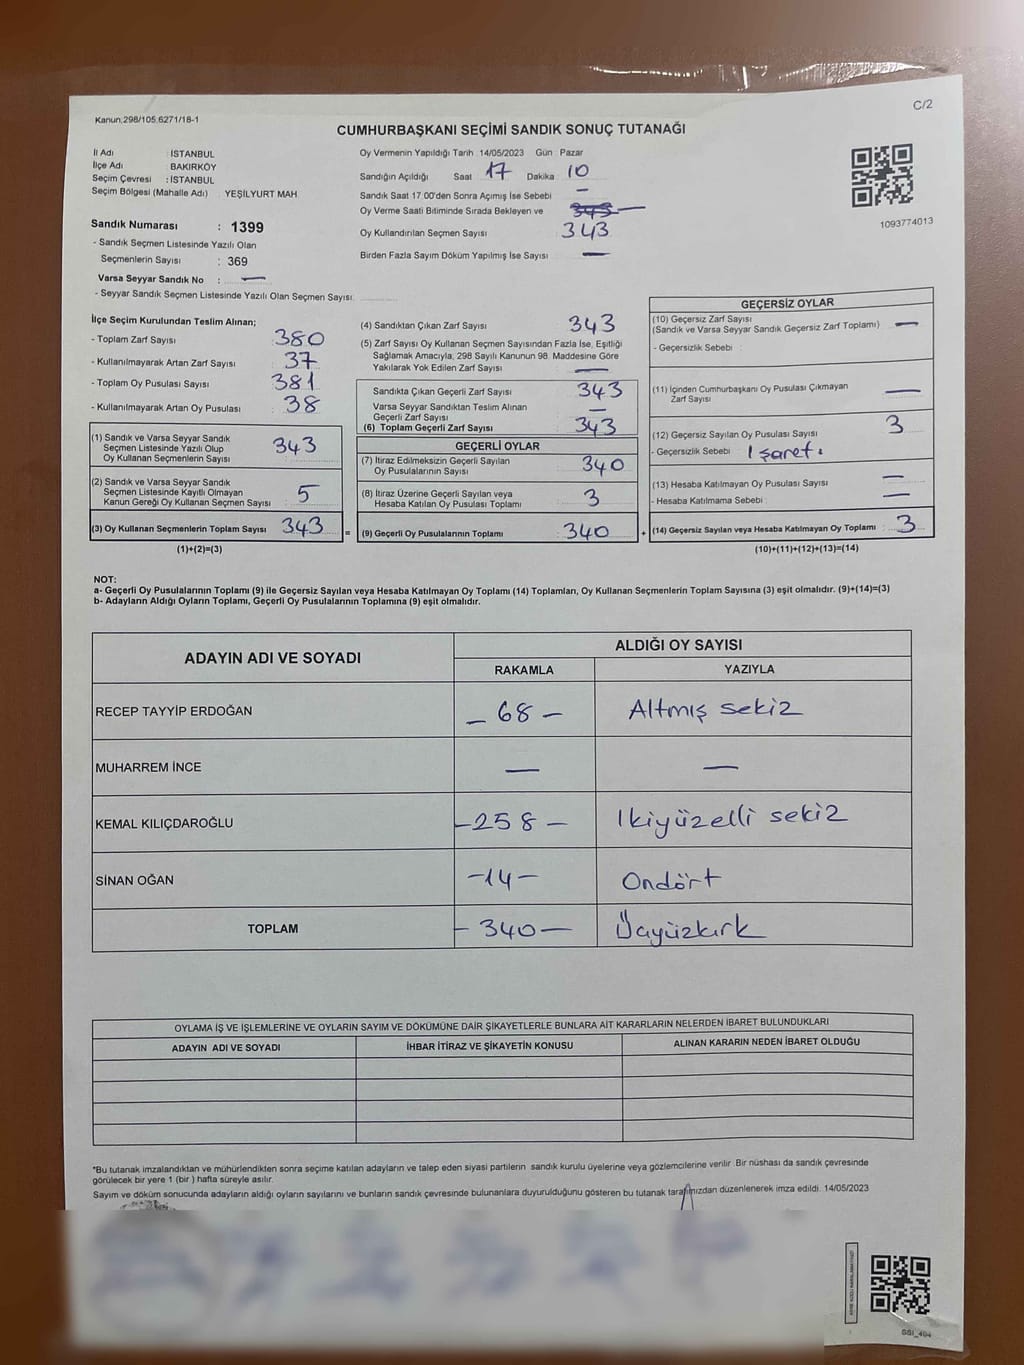 C/2
Kanun:298/105,6271/18-1
CUMHURBAŞKANI SEÇİMİ SANDIK SONUÇ TUTANAĞI
İl Adı : İSTANBUL
İlçe Adı : BAKIRKÖY
Seçim Çevresi : İSTANBUL
Seçim Bölgesi (Mahalle Adı) : YEŞİLYURT MAH
Oy Vermenin Yapıldığı Tarih : 14/05/2023 Gün : Pazar
Sandığın Açıldığı Saat 17 Dakika 10
Sandık Saat 17:00'den Sonra Açımış İse Sebebi —
Oy Verme Saati Bitiminde Sırada Bekleyen ve 343
Oy Kullandırılan Seçmen Sayısı 343
Birden Fazla Sayım Döküm Yapılmış İse Sayısı —
1093774013
Sandık Numarası : 1399
- Sandık Seçmen Listesinde Yazılı Olan
Seçmenlerin Sayısı : 369
Varsa Seyyar Sandık No : —
- Seyyar Sandık Seçmen Listesinde Yazılı Olan Seçmen Sayısı:
İlçe Seçim Kurulundan Teslim Alınan;
- Toplam Zarf Sayısı : 380
- Kullanılmayarak Artan Zarf Sayısı : 37
- Toplam Oy Pusulası Sayısı : 381
- Kullanılmayarak Artan Oy Pusulası : 38
(1) Sandık ve Varsa Seyyar Sandık
Seçmen Listesinde Yazılı Olup
Oy Kullanan Seçmenlerin Sayısı : 343
(2) Sandık ve Varsa Seyyar Sandık
Seçmen Listesinde Kayıtlı Olmayan
Kanun Gereği Oy Kullanan Seçmen Sayısı : 5
(3) Oy Kullanan Seçmenlerin Toplam Sayısı : 343 =
(1)+(2)=(3)
(4) Sandıktan Çıkan Zarf Sayısı : 343
(5) Zarf Sayısı Oy Kullanan Seçmen Sayısından Fazla İse, Eşitliği
Sağlamak Amacıyla, 298 Sayılı Kanunun 98. Maddesine Göre
Yakılarak Yok Edilen Zarf Sayısı : —
Sandıkta Çıkan Geçerli Zarf Sayısı : 343
Varsa Seyyar Sandıktan Teslim Alınan
Geçerli Zarf Sayısı : —
(6) Toplam Geçerli Zarf Sayısı : 343
GEÇERLİ OYLAR
(7) İtiraz Edilmeksizin Geçerli Sayılan
Oy Pusulalarının Sayısı : 340
(8) İtiraz Üzerine Geçerli Sayılan veya
Hesaba Katılan Oy Pusulası Toplamı : 3
(9) Geçerli Oy Pusulalarının Toplamı : 340 +
GEÇERSİZ OYLAR
(10) Geçersiz Zarf Sayısı
(Sandık ve Varsa Seyyar Sandık Geçersiz Zarf Toplamı) : —
- Geçersizlik Sebebi :
(11) İçinden Cumhurbaşkanı Oy Pusulası Çıkmayan
Zarf Sayısı : —
(12) Geçersiz Sayılan Oy Pusulası Sayısı : 3
- Geçersizlik Sebebi : İşaret.
(13) Hesaba Katılmayan Oy Pusulası Sayısı : —
- Hesaba Katılmama Sebebi : —
(14) Geçersiz Sayılan veya Hesaba Katılmayan Oy Toplamı : 3
(10)+(11)+(12)+(13)=(14)
NOT:
a- Geçerli Oy Pusulalarının Toplamı (9) ile Geçersiz Sayılan veya Hesaba Katılmayan Oy Toplamı (14) Toplamları, Oy Kullanan Seçmenlerin Toplam Sayısına (3) eşit olmalıdır. (9)+(14)=(3)
b- Adayların Aldığı Oyların Toplamı, Geçerli Oy Pusulalarının Toplamına (9) eşit olmalıdır.
ADAYIN ADI VE SOYADI ALDIĞI OY SAYISI
RAKAMLA YAZIYLA
RECEP TAYYİP ERDOĞAN – 68 – Altmış sekiz
MUHARREM İNCE — —
KEMAL KILIÇDAROĞLU – 258 – İkiyüzelli sekiz
SİNAN OĞAN – 14 – Ondört
TOPLAM – 340 – Üçyüzkırk
OYLAMA İŞ VE İŞLEMLERİNE VE OYLARIN SAYIM VE DÖKÜMÜNE DAİR ŞİKAYETLERLE BUNLARA AİT KARARLARIN NELERDEN İBARET BULUNDUKLARI
ADAYIN ADI VE SOYADI İHBAR İTİRAZ VE ŞİKAYETİN KONUSU ALINAN KARARIN NEDEN İBARET OLDUĞU
*Bu tutanak imzalandıktan ve mühürlendikten sonra seçime katılan adayların ve talep eden siyasi partilerin sandık kurulu üyelerine veya gözlemcilerine verilir .Bir nüshası da sandık çevresinde
görülecek bir yere 1 (bir ) hafta süreyle asılır.
Sayım ve döküm sonucunda adayların aldığı oyların sayılarını ve bunların sandık çevresinde bulunanlara duyurulduğunu gösteren bu tutanak tarafımızdan düzenlenerek imza edildi. 14/05/2023